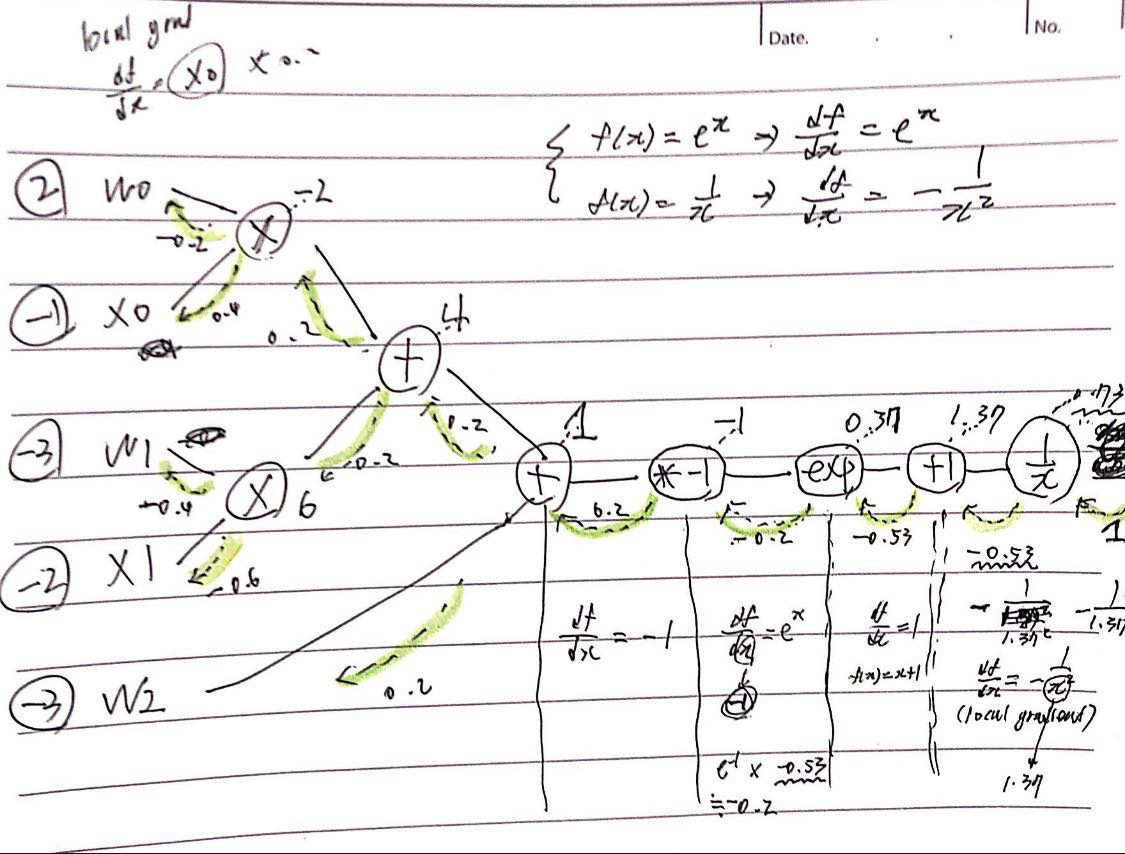 Date.
No.
local grad
df/dx = x0 × 0.2
{ f(x) = e^x → df/dx = e^x
f(x) = 1/x → df/dx = -1/x²
2 W0
-2
×
-0.2
-1 X0
0.4
0.2
4
+
-3 W1
0.2
0.2
-0.4
×
6
-2 X1
-0.6
1
+
-1
*-1
0.37
exp
1.37
+1
0.73
1/x
0.2
-0.2
-0.53
-0.53
1
-3 W2
0.2
df/dx = -1
df/dx = e^x
-1
e^-1 × -0.53
≒ -0.2
df/dx = 1
f(x) = x+1
-1/1.37²
-1/1.37
df/dx = -1/x²
(local gradient)
1.37